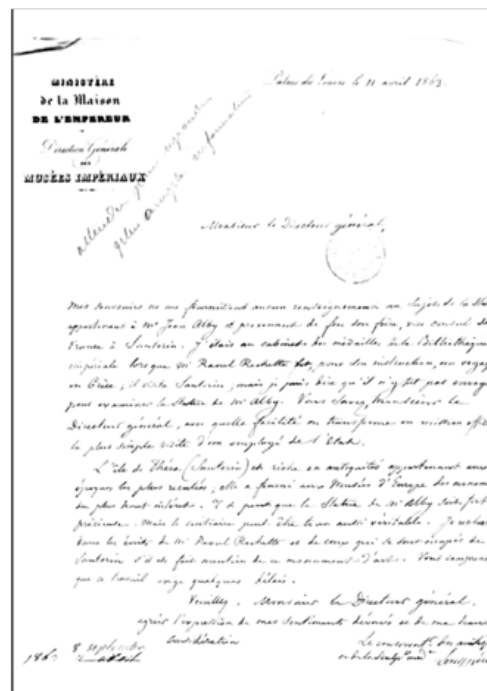 MINISTÈRE
de la Maison
DE L'EMPEREUR
Direction Générale
DES
MUSÉES IMPÉRIAUX
Palais du Louvre le 11 avril 1863.
attendre pour répondre
plus ample information
Monsieur le Directeur général,
Mes souvenirs ne me fournissent aucun renseignement au sujet de la
appartenant à Mr Jean Alby et provenant de feu son frère, vice consul de
France à Santorin. J'étais au cabinet des médailles de la Bibliothèque
impériale lorsque Mr Raoul Rochette fit, pour son instruction, un voyage
en Grèce; il visita Santorin; mais je puis dire qu'il n'y fut pas envoyé
pour examiner la Statue de Mr Alby. Vous savez, Monsieur le
Directeur général, avec quelle facilité on transforme en mission
la plus simple visite d'un employé de l'Etat.
L'île de Théra (Santorin) est riche en antiquités appartenant aux
époques les plus reculées; elle a fourni aux Musées d'Europe des
du plus haut intérêt. Il se peut que la Statue de Mr Alby soit fort
précieuse. Mais le contraire peut être tout aussi véritable. Je
dans les écrits de Mr Raoul Rochette et de ceux qui se sont occupés de
Santorin s'il est fait mention de ce monument d'art. Vous
que ce travail exige quelques délais.
Veuillez, Monsieur le Directeur général,
agréer l'expression de mes sentiments dévoués et de ma haute
considération
Le conservateur des
1863 8 septembre